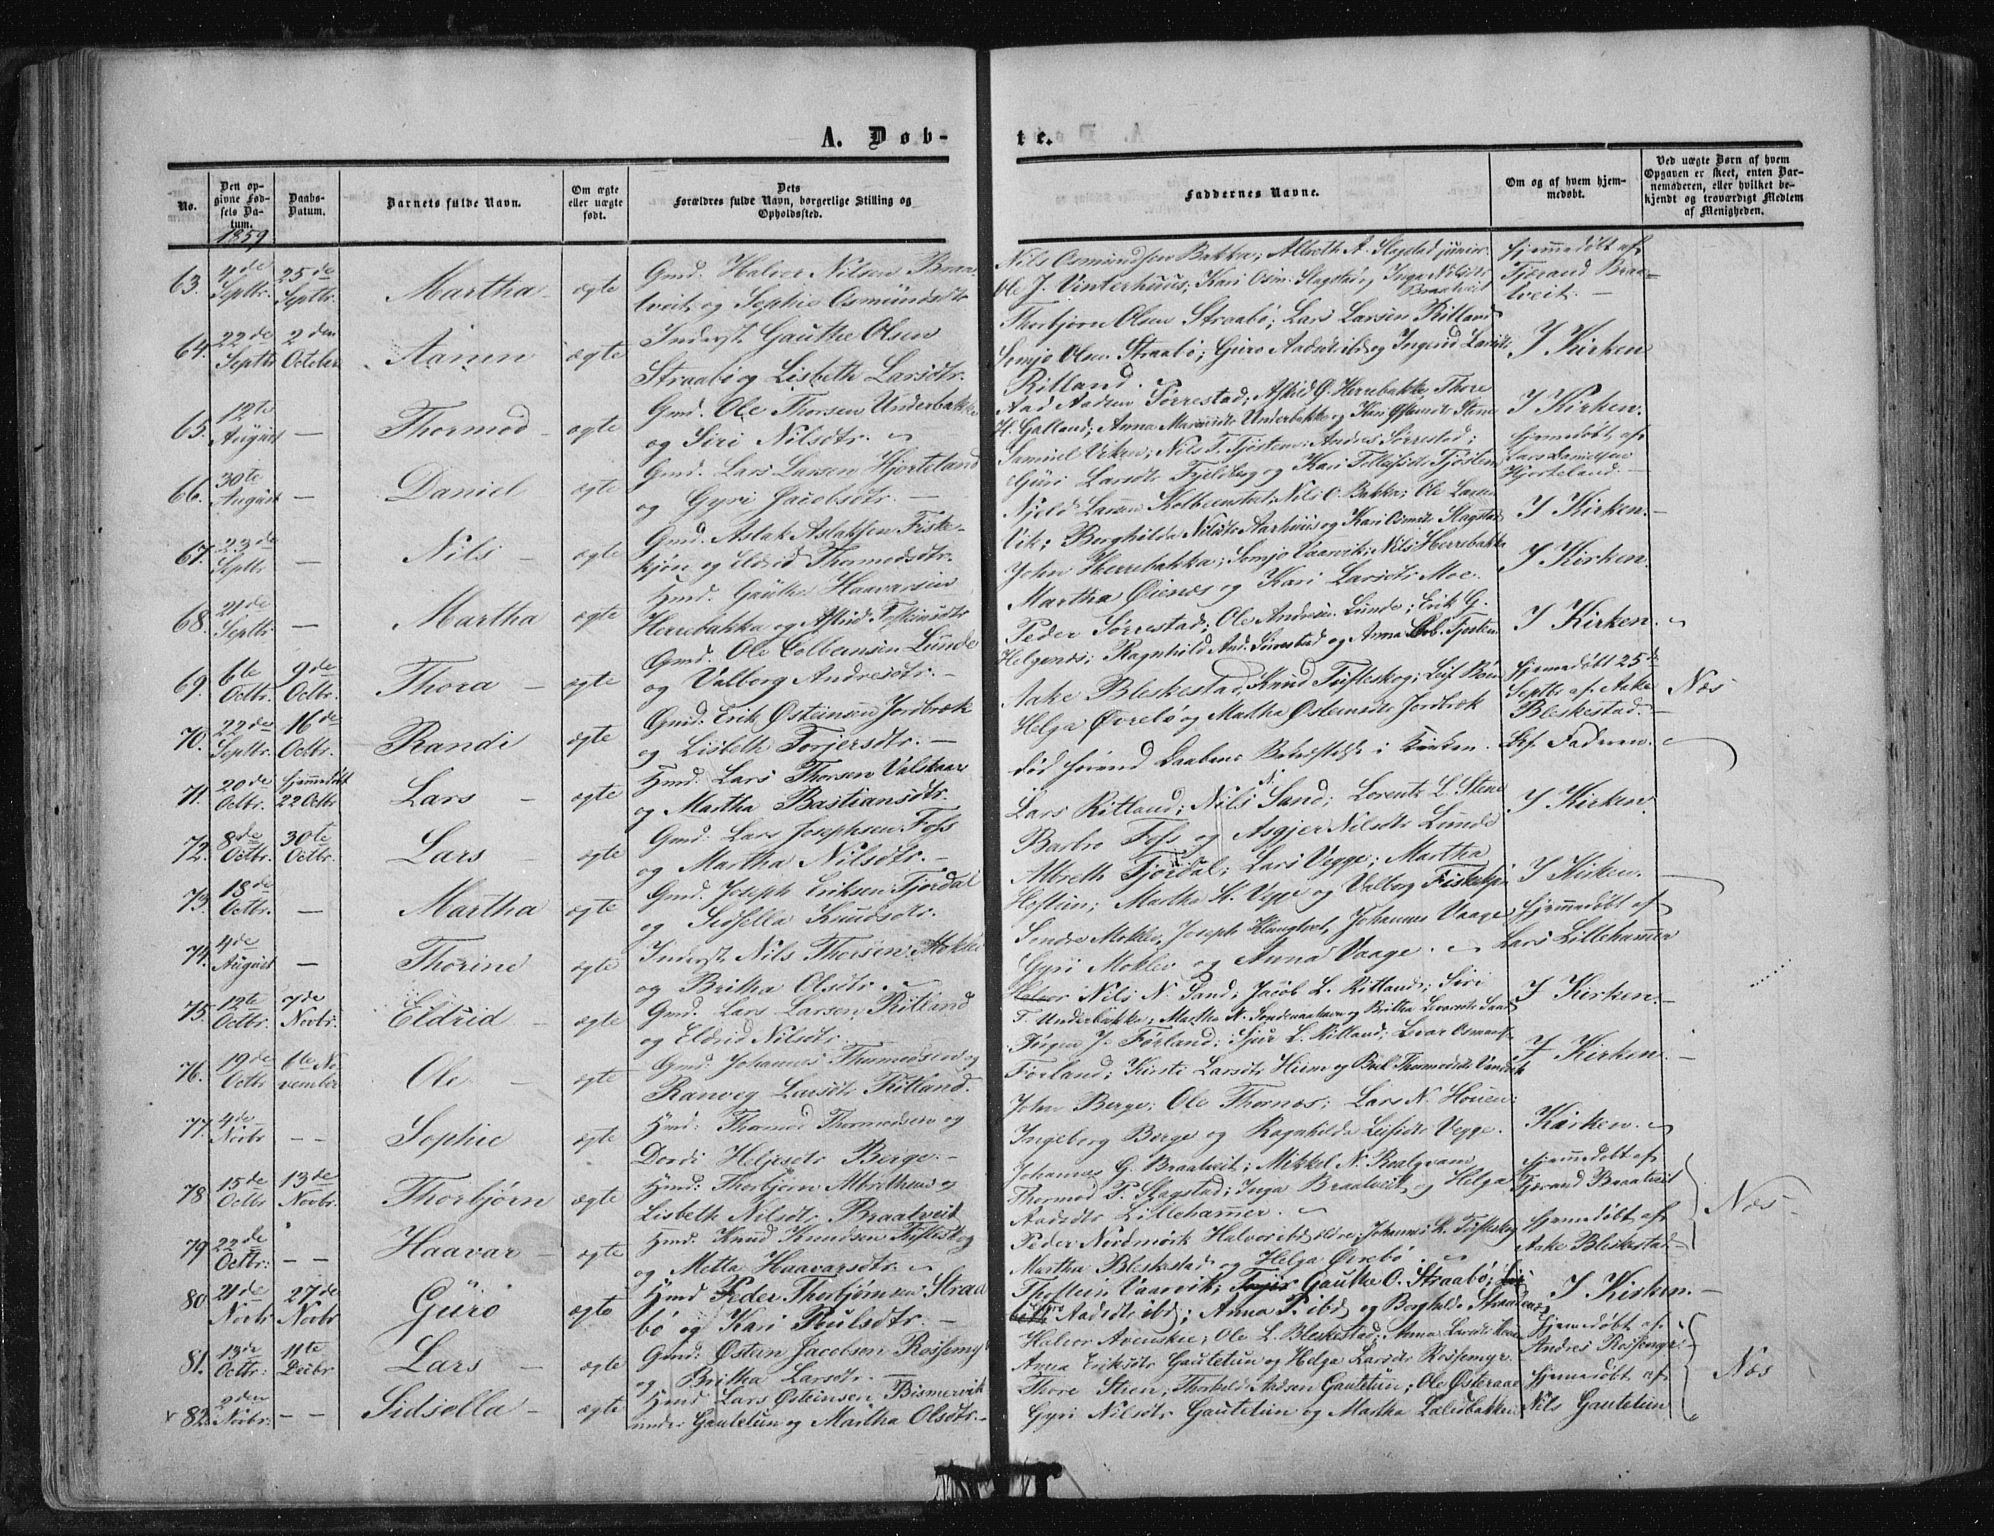 A. Døb-
te.
No.
Den opgivne Fødsels Datum.
Daabs-Datum.
Barnets fulde Navn.
Om ægte eller uægte født.
Dets Forældres fulde Navn, borgerlige Stilling og Opholdssted.
Faddernes Navne.
Om og af hvem hjemmedøbt.
Ved uægte Børn af hvem Opgaven er skeet, enten Barnemoderen, eller hvilket bekjendt og troværdigt Medlem af Menigheden.
1859
63. 4de Septbr. 25de Septbr. Martha ægte Gmd. Halvor Nilsen Braatveit og Sophie Osmundsdtr
Nils Osmundsen Bakka; Albreth A. Slagstad junior
Ole J. Vinterhuus; Kari Osm. Slagstad og Inga Nilsdtr Braatveit
Hjemmedøbt af Tjerand Braatveit.
64. 22de Septbr 2den October Aanen ægte Inderst Gauthe Olsen Straabø og Lisbeth Larsdtr.
Thorbjørn Olsen Straabø; Lars Larsen Ritland
Somjo Olsen Straabø; Guro Aadsdtr ibd og Ingerid Larsdtr Ritland.
I Kirken
65. 12te August — Thormod ægte Gmd. Ole Thorsen Underbakke og Siri Nilsdtr.
Aad Aadsen Sørrestad; Herrebakke, Thore
H. Galland; Anna Underbakke og Kari Stene
I Kirken.
66. 30te August — Daniel ægte Gmd. Lars Larsen Hjorteland og Gyri Jacobsdtr. —
Samuel Viken; Nils T. Tjøsten; Andres Sørrestad;
Guri Larsdtr Fjeldberg og Kari Tjøsten
Hjemmedøbt af Lars Danielsen Hjorteland. —
67. 23de Septbr — Nils — ægte Gmd. Aslak Aslaksen Fiskekjøn og Eldrid Thormodsdtr.
Njeld Larsen Kolbeenstvet; Nils O. Bakka; Ole Larsen
Vik; Berghilda Nilsdtr Aarhuus og Kari Osmdtr Slagstad
I Kirken. —
68. 21de Septbr — Martha ægte Hmd. Gauthe Haavarsen Herrebakka og Astrid Tosteinsdtr
John Herrebakka; Somjo Vaarvik; Nils Herrebakka
Martha Øienæs og Kari Larsdtr Moe.
I Kirken
69. 6te Octbr. 9de Octbr. Thora — ægte Gmd. Ole Colbeensen Lunde og Valborg Andresdtr. —
Peder Sørrestad; Ole Andresen Lunde; Erik G.
Helgenæs; Ragnhild And. Sørrestad og Anna Tjøsten
I Kirken.
70. 22de Septbr. 16de Octbr. Randi ægte Gmd. Erik Østeinsen Jordbræk og Lisbeth Torjersdtr. —
Aake Bleskestad; Knud Tufteskog; Leif
Helga Øvrebø og Martha Østeinsdtr Jordbræk
Hjemmedøbt 25de Septbr af Aake Bleskestad. —
Næs
71. 20de Octbr. Hjemmedøbt 22 Octbr Lars — ægte Hmd. Lars Thorsen Valskaar og Martha Bastiansdtr.
død førend Daabens Bekræftelse i Kirken.
af Faderen.
72. 8de Octbr. 30te Octbr. Lars — ægte Gmd. Lars Josephsen Foss og Martha Nilsdtr. —
Lars Ritland; Nils N. Sand; Lorentz L. Stene
Barbro Foss og Asgjer Nilsdtr Lunde
I Kirken
73. 18de Octbr. — Martha ægte Gmd. Joseph Eriksen Fjordal og Sidsella Knudsdtr.
Albreth Fjordal; Lars Vegge; Martha
Martha K. Vegge og Valborg Fiskekjøn
I Kirken. —
74. 4de August — Thorine ægte Inderst Nils Thorsen Moklev og Britha Olsdtr.
Sondre Moklev, Joseph Klungtvet, Johannes Vaage
Gyri Moklev og Anna Vaage.
Hjemmedøbt af Lars Lillehammer
75. 12te Octbr. 7de Novbr. Eldrid — ægte Gmd. Lars Larsen Ritland og Eldrid Nilsdtr.
Nils N. Sand; Jacob L. Ritland; Siri
T. Underbakke; Martha N. og Britha Sand
I Kirken. —
76. 19de Octbr 6te November Ole — ægte Gmd: Johannes Thormodsen og Ranveig Larsdtr Ritland.
Jørgen J. Førland; Sjur L. Ritland; Levar Osmunds.
Førland; Kirsti Larsdtr Hiim og Thormodsdtr
I Kirken. —
77. 4de Novbr — — Sophie ægte Hmd: Thormod Thormodsen og Dordi Heljesdtr Berge. —
John Berge; Ole Thornæs; Lars N. Houen;
Ingeborg Berge og Ragnhilda Leifsdtr Vegge.
Kirken.
78. 15de Octbr 13de Novbr. Thorbjørn ægte Hmd: Thorbjørn Albrethsen og Lisbeth Nilsdtr Braatveit
Johannes G. Braatveit; Mikkel N. Roalqvam
Thormod T. Slagstad; Inga Braatveit og Helga
Aadsdtr Lillehammer.
Hjemmedøbt af Tjerand Braatveit
Næs.
79. 22de Octbr: — — Haavar — ægte Hmd: Knud Knudsen Tufteskog og Metta Haavarsdtr.
Peder Nordmork Halvor ibd ældre; Johannes K. Tufteskog
Martha Bleskestad og Helga Øvrebø
Hjemmedøbt af Aake Bleskestad. —
80. 21de Novbr 27de Novbr Guro ægte Hmd Peder Thorbjørnsen Straabø og Kari Poulsdtr. —
Thostein Vaarvik; Gauthe O. Straabø;
Aadsdtr ibd; Anna P. ibd og Borghilda
I Kirken. —
81. 13de Octbr: 11te Decbr Lars — ægte Gmd: Østen Jacobsen Rossemyr og Britha Larsdtr.
Halvor Avenskie; Ole L. Bleskestad; Anna Larsdtr
Anna Eriksdtr Gautetun og Helga Larsdtr Rossemyr.
Hjemmedøbt af Andres Rossemyr
Næs
82. 2den Novbr. — — Sidsella — ægte Hmd Lars Østeinsen Bismervik under Gautetun og Martha Olsdtr. —
Thore Stien; Thorkeld Aadsen Gautetun; Ole Østeraae
Gyri Nilsdtr Gautetun og Martha
Hjemmedøbt af Nils Gautetun